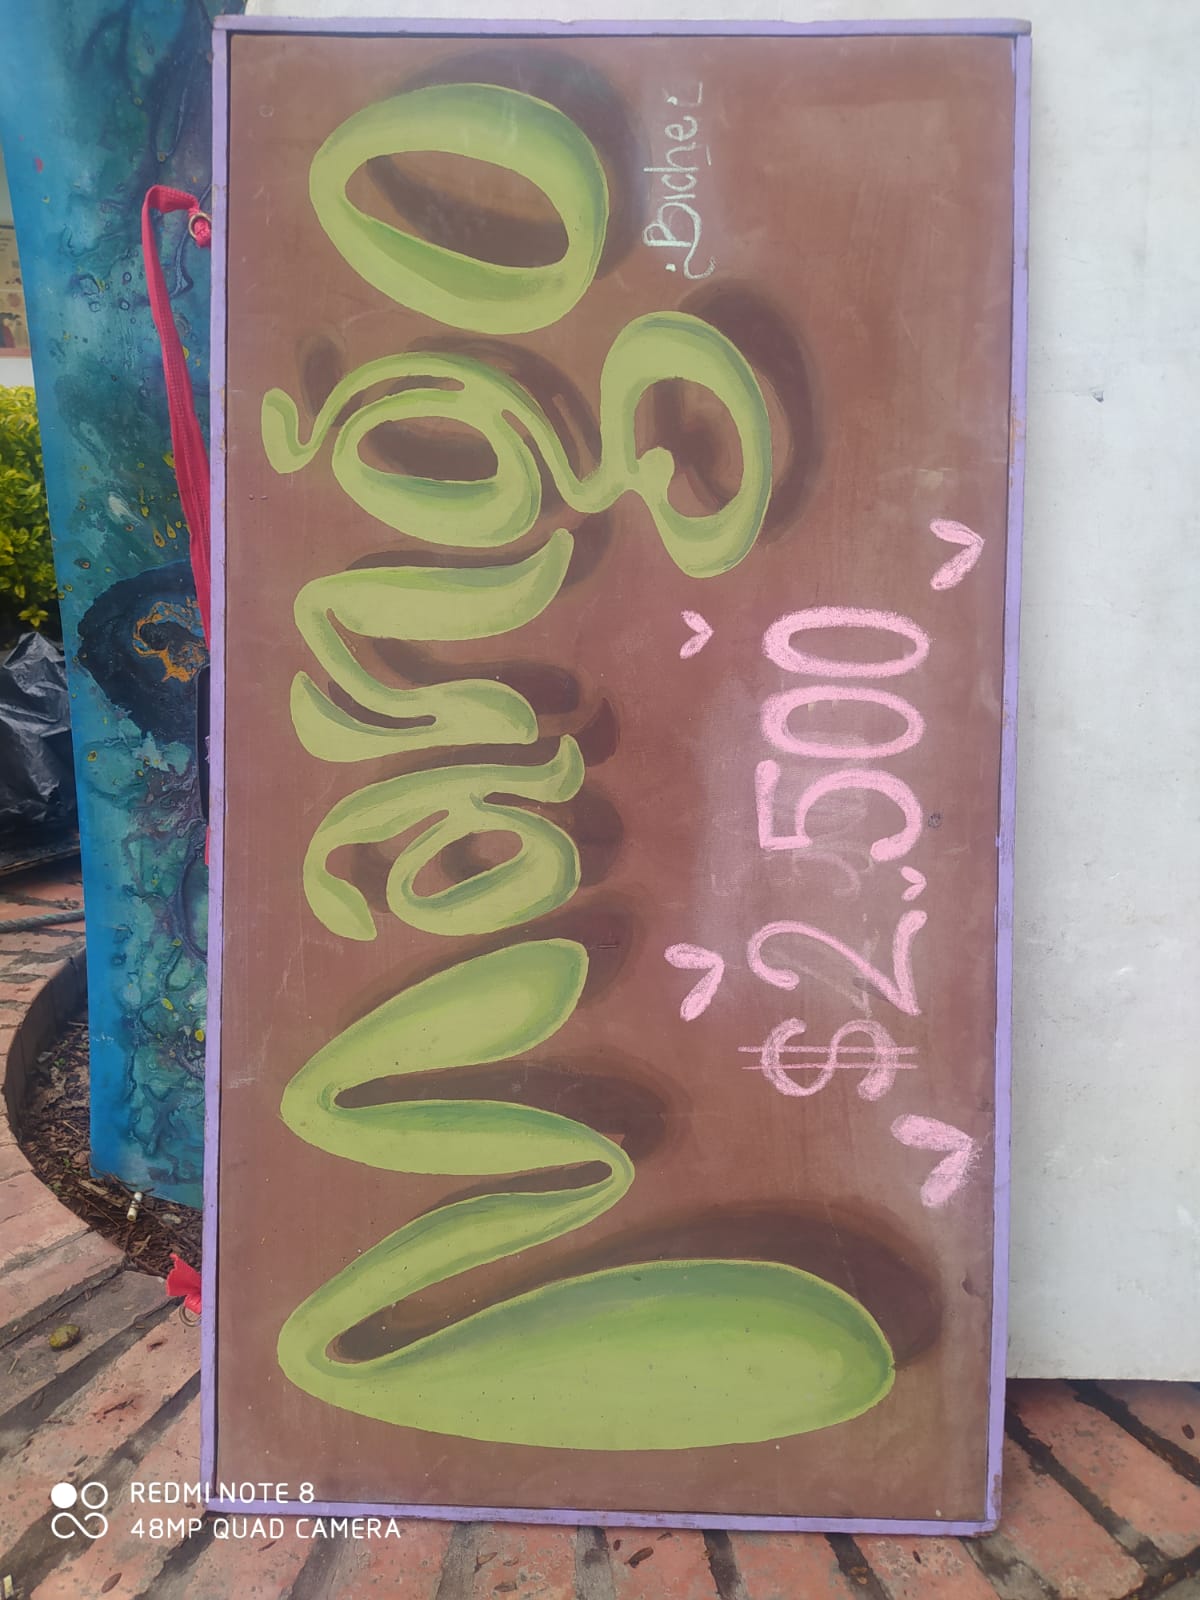 Mango
Biche
$2.500
REDMI NOTE 8
48MP QUAD CAMERA